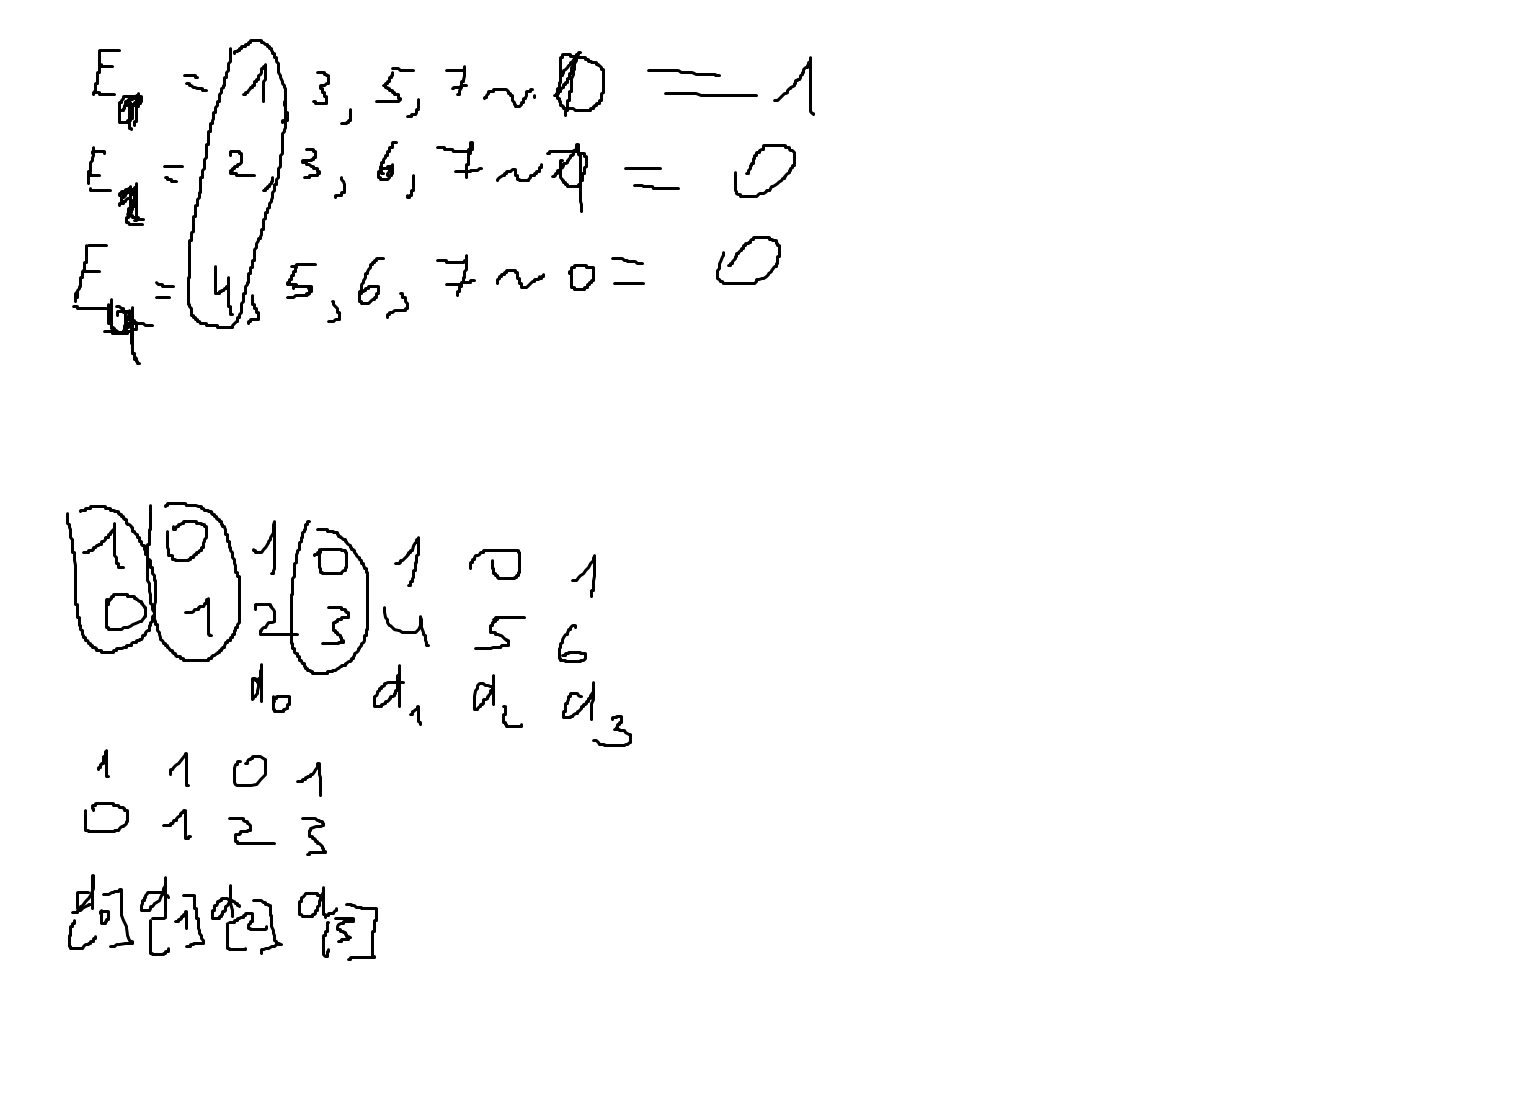 E = 1 3, 5, 7 ~ = 1
E = 2, 3, 6, 7 ~ = 0
E = 4, 5, 6, 7 ~ 0 = 0
1 0 1 0 1 0 1
0 1 2 3 4 5 6
d0 d1 d2 d3
1 1 0 1
0 1 2 3
d[0] d[1] d[2] d[3]